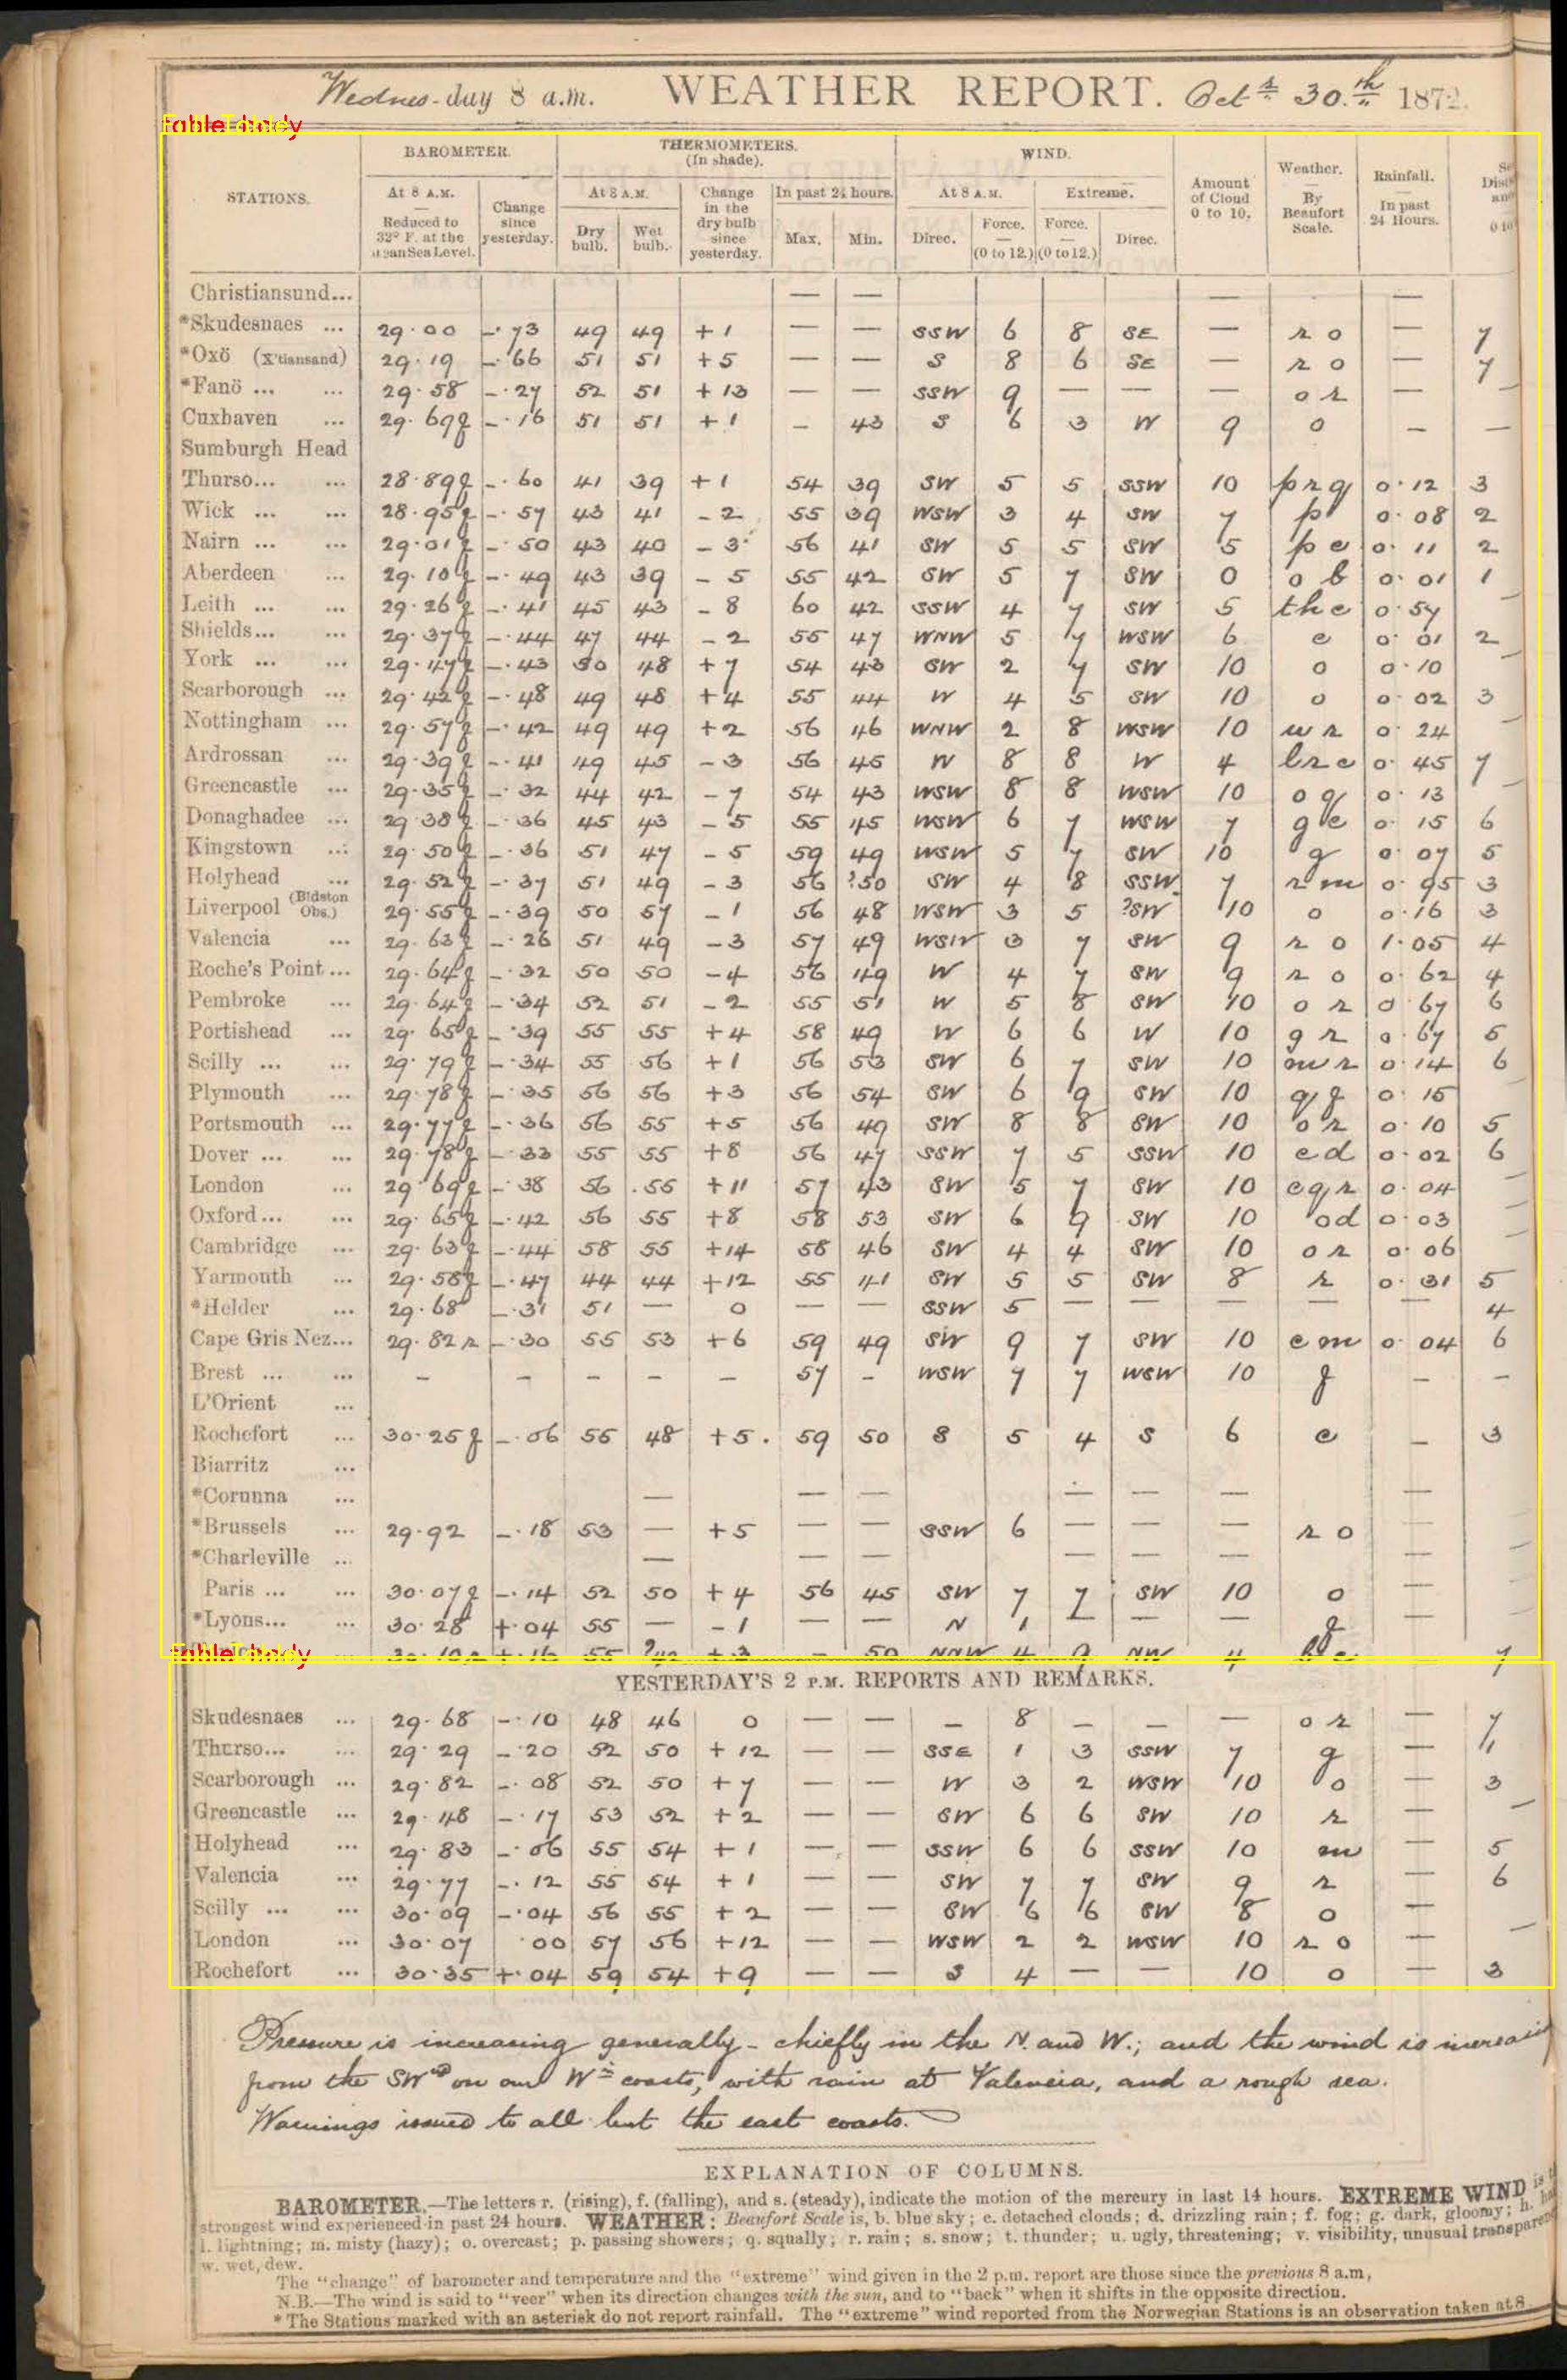 Wednes-day 8 a.m. WEATHER REPORT. Oct.r 30.th 1872.
BAROMETER. THERMOMETERS. (In shade). WIND. Amount of Cloud 0 to 10. Weather. — By Beaufort Scale. Rainfall. — In past 24 Hours.
STATIONS. At 8 A.M. — Reduced to 32° F. at the Mean Sea Level. Change since yesterday. At 8 A.M. Dry bulb. Wet bulb. Change in the dry bulb since yesterday. In past 24 hours. Max. Min. At 8 A.M. Direc. Force. — (0 to 12.) Extreme. Force. — (0 to 12.) Direc.
Christiansund... — — — —
*Skudesnaes ... 29.00 -.73 49 49 +1 — — SSW 6 8 SE — r o — 7
*Oxö (X'tiansand) 29.19 -.66 51 51 +5 — — S 8 6 SE — r o — 7
*Fanö ... ... 29.58 -.27 52 51 +13 — — SSW 9 — — — o r — —
Cuxhaven ... 29.69f -.16 51 51 +1 - 43 S 6 3 W 9 o - —
Sumburgh Head
Thurso... ... 28.89f -.60 41 39 +1 54 39 SW 5 5 SSW 10 prq 0.12 3
Wick ... ... 28.95f -.57 43 41 -2 55 39 WSW 3 4 SW 7 p 0.08 2
Nairn ... ... 29.01f -.50 43 40 -3 56 41 SW 5 5 SW 5 p c 0.11 2
Aberdeen ... 29.10f -.49 43 39 -5 55 42 SW 5 7 SW 0 o b 0.01 1
Leith ... ... 29.26f -.41 45 43 -8 60 42 SSW 4 7 SW 5 the 0.57 —
Shields... ... 29.37f -.44 47 44 -2 55 47 WNW 5 7 WSW 6 c 0.01 2
York ... ... 29.47f -.43 50 48 +7 54 43 SW 2 7 SW 10 o 0.10 —
Scarborough ... 29.42f -.48 49 48 +4 55 44 W 4 5 SW 10 o 0.02 3
Nottingham ... 29.57f -.42 49 49 +2 56 46 WNW 2 8 WSW 10 w r 0.24 —
Ardrossan ... 29.39f -.41 49 45 -3 56 45 W 8 8 W 4 brc 0.45 7
Greencastle ... 29.35f -.32 44 42 -7 54 43 WSW 8 8 WSW 10 o q 0.13 —
Donaghadee ... 29.38f -.36 45 43 -5 55 45 WSW 6 7 WSW 7 g c 0.15 6
Kingstown ... 29.50f -.36 51 47 -5 59 49 WSW 5 7 SW 10 g 0.07 5
Holyhead ... 29.52f -.37 51 49 -3 56 ?50 SW 4 8 SSW 7 r m 0.95 3
Liverpool (Bidston Obs.) 29.55f -.39 50 57 -1 56 48 WSW 3 5 ?SW 10 o 0.16 3
Valencia ... 29.63f -.26 51 49 -3 57 49 WSW 3 7 SW 9 r o 1.05 4
Roche's Point... 29.64f -.32 50 50 -4 56 49 W 4 7 SW 9 r o 0.62 4
Pembroke ... 29.64f -.34 52 51 -2 55 51 W 5 8 SW 10 o r 0.67 6
Portishead ... 29.65f -.39 55 55 +4 58 49 W 6 6 W 10 g r 0.67 5
Scilly ... ... 29.79f -.34 55 56 +1 56 53 SW 6 7 SW 10 m r 0.14 6
Plymouth ... 29.78f -.35 56 56 +3 56 54 SW 6 9 SW 10 q f 0.15 —
Portsmouth ... 29.77f -.36 56 55 +5 56 49 SW 8 8 SW 10 o r 0.10 5
Dover ... ... 29.78f -.33 55 55 +8 56 47 SSW 7 5 SSW 10 c d 0.02 6
London ... 29.69f -.38 56 55 +11 57 43 SW 5 7 SW 10 cqr 0.04 —
Oxford... ... 29.65f -.42 56 55 +8 58 53 SW 6 9 SW 10 o d 0.03 —
Cambridge ... 29.63f -.44 58 55 +14 58 46 SW 4 4 SW 10 o r 0.06 —
Yarmouth ... 29.58f -.47 44 44 +12 55 41 SW 5 5 SW 8 r 0.31 5
*Helder ... 29.68 -.31 51 — 0 — — SSW 5 — — — — — 4
Cape Gris Nez... 29.82r -.30 55 53 +6 59 49 SW 9 7 SW 10 c m 0.04 6
Brest ... ... - - - - - 57 - WSW 7 7 WSW 10 f - -
L'Orient ...
Rochefort ... 30.25f -.06 55 48 +5 59 50 S 5 4 S 6 c - 3
Biarritz ...
*Corunna ... — — — — — — —
*Brussels ... 29.92 -.18 53 — +5 — — SSW 6 — — — r o — —
*Charleville ... — — — — — — — —
Paris ... ... 30.07f -.14 52 50 +4 56 45 SW 7 7 SW 10 o — —
*Lyons... ... 30.28 +.04 55 — -1 — — N 1 — — — f —
+3 - 50 NNW 4 9 NW 4 b c — 7
YESTERDAY'S 2 P.M. REPORTS AND REMARKS.
Skudesnaes ... 29.68 -.10 48 46 0 — — — 8 — — — o r — 7
Thurso... ... 29.29 -.20 52 50 +12 — — SSE 1 3 SSW 7 g — 1
Scarborough ... 29.82 -.08 52 50 +7 — — W 3 2 WSW 10 o — 3
Greencastle ... 29.48 -.17 53 52 +2 — — SW 6 6 SW 10 r — —
Holyhead ... 29.83 -.06 55 54 +1 — — SSW 6 6 SSW 10 m — 5
Valencia ... 29.77 -.12 55 54 +1 — — SW 7 7 SW 9 r — 6
Scilly ... ... 30.09 -.04 56 55 +2 — — SW 6 6 SW 8 o —
London ... 30.07 .00 57 56 +12 — — WSW 2 2 WSW 10 r o — —
Rochefort ... 30.35 +.04 59 54 +9 — — S 4 — — 10 o — 3
Pressure is increasing generally - chiefly in the N. and W.; and the wind is
from the SWd on our Wn coasts, with rain at Valencia, and a rough sea.
Warnings issued to all but the east coasts.
EXPLANATION OF COLUMNS.
BAROMETER.—The letters r. (rising), f. (falling), and s. (steady), indicate the motion of the mercury in last 14 hours. EXTREME WIND is
strongest wind experienced in past 24 hours. WEATHER: Beaufort Scale is, b. blue sky; c. detached clouds; d. drizzling rain; f. fog; g. dark, gloomy; h.
l. lightning; m. misty (hazy); o. overcast; p. passing showers; q. squally; r. rain; s. snow; t. thunder; u. ugly, threatening; v. visibility, unusual
w. wet, dew.
The "change" of barometer and temperature and the "extreme" wind given in the 2 p.m. report are those since the previous 8 a.m,
N.B.—The wind is said to "veer" when its direction changes with the sun, and to "back" when it shifts in the opposite direction.
* The Stations marked with an asterisk do not report rainfall. The "extreme" wind reported from the Norwegian Stations is an observation taken at 8